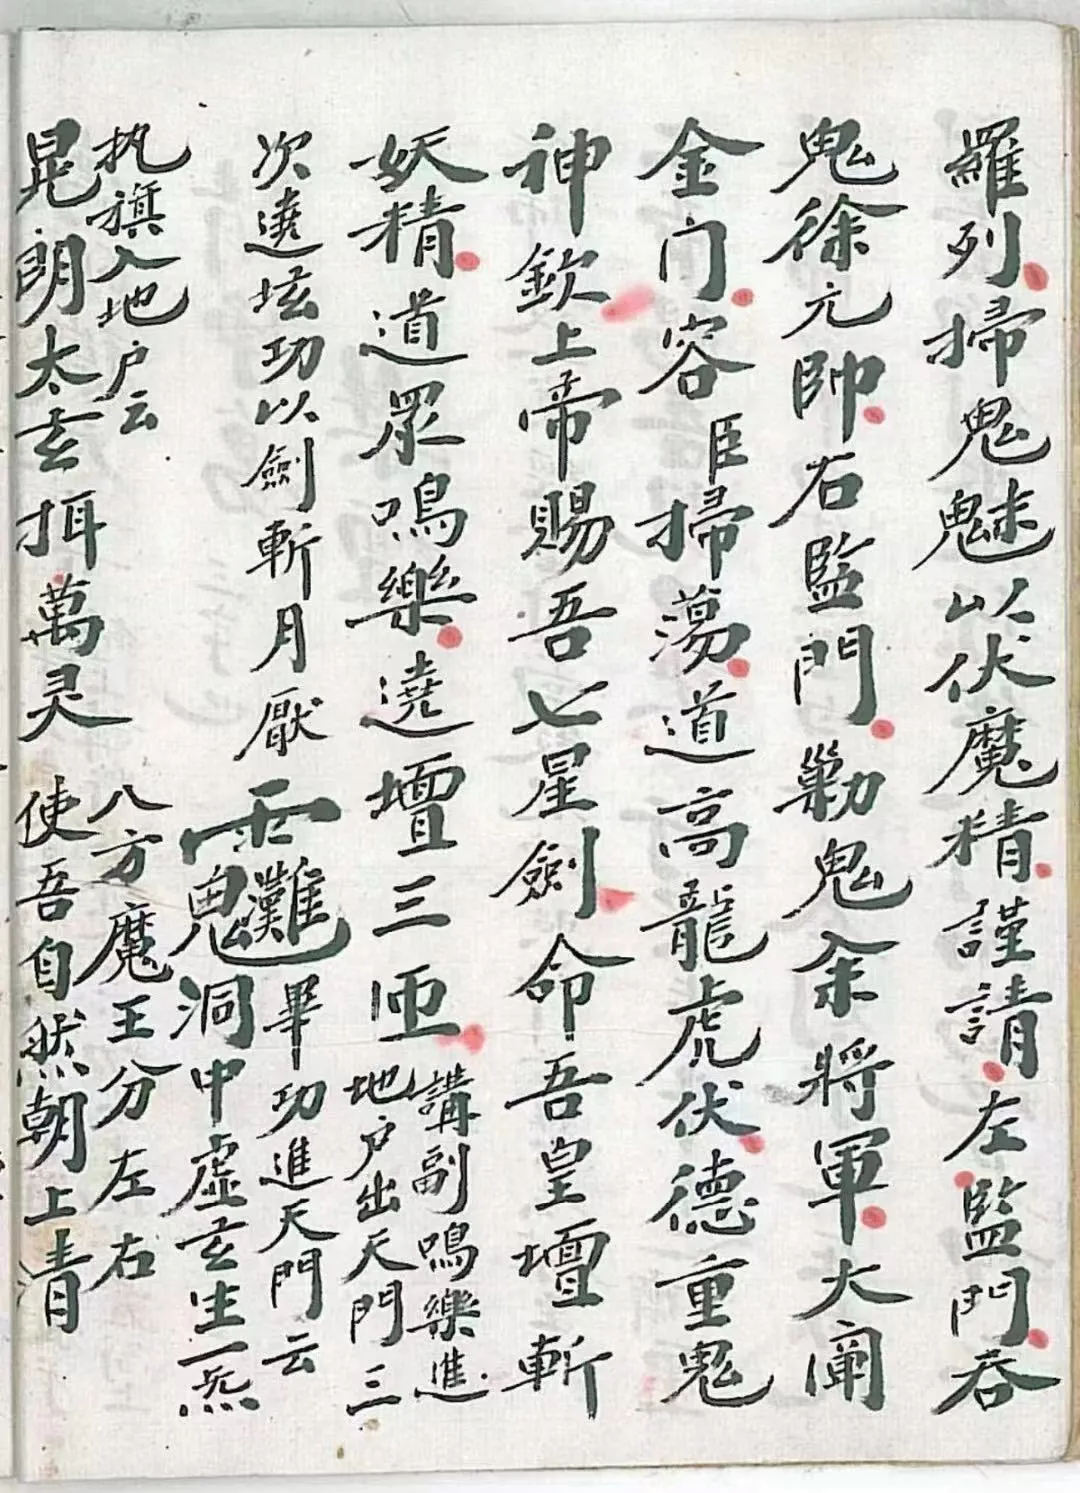 羅列掃鬼魅以伏魔精謹請左監門吞
鬼徐元帥右監門勦鬼余將軍大開
金门容臣掃蕩道高龍虎伏德重鬼
神欽上帝賜吾七星劍命吾皇壇斬
妖精道眾鳴樂遶壇三匝
講副鳴樂進
地户出天門三
次遶坛功以劍斬月厭
畢功進天門云
洞中虛玄生一炁
执旗入地户云
八方魔王分左右
晃朗太玄 萬灵
使吾自然朝上青